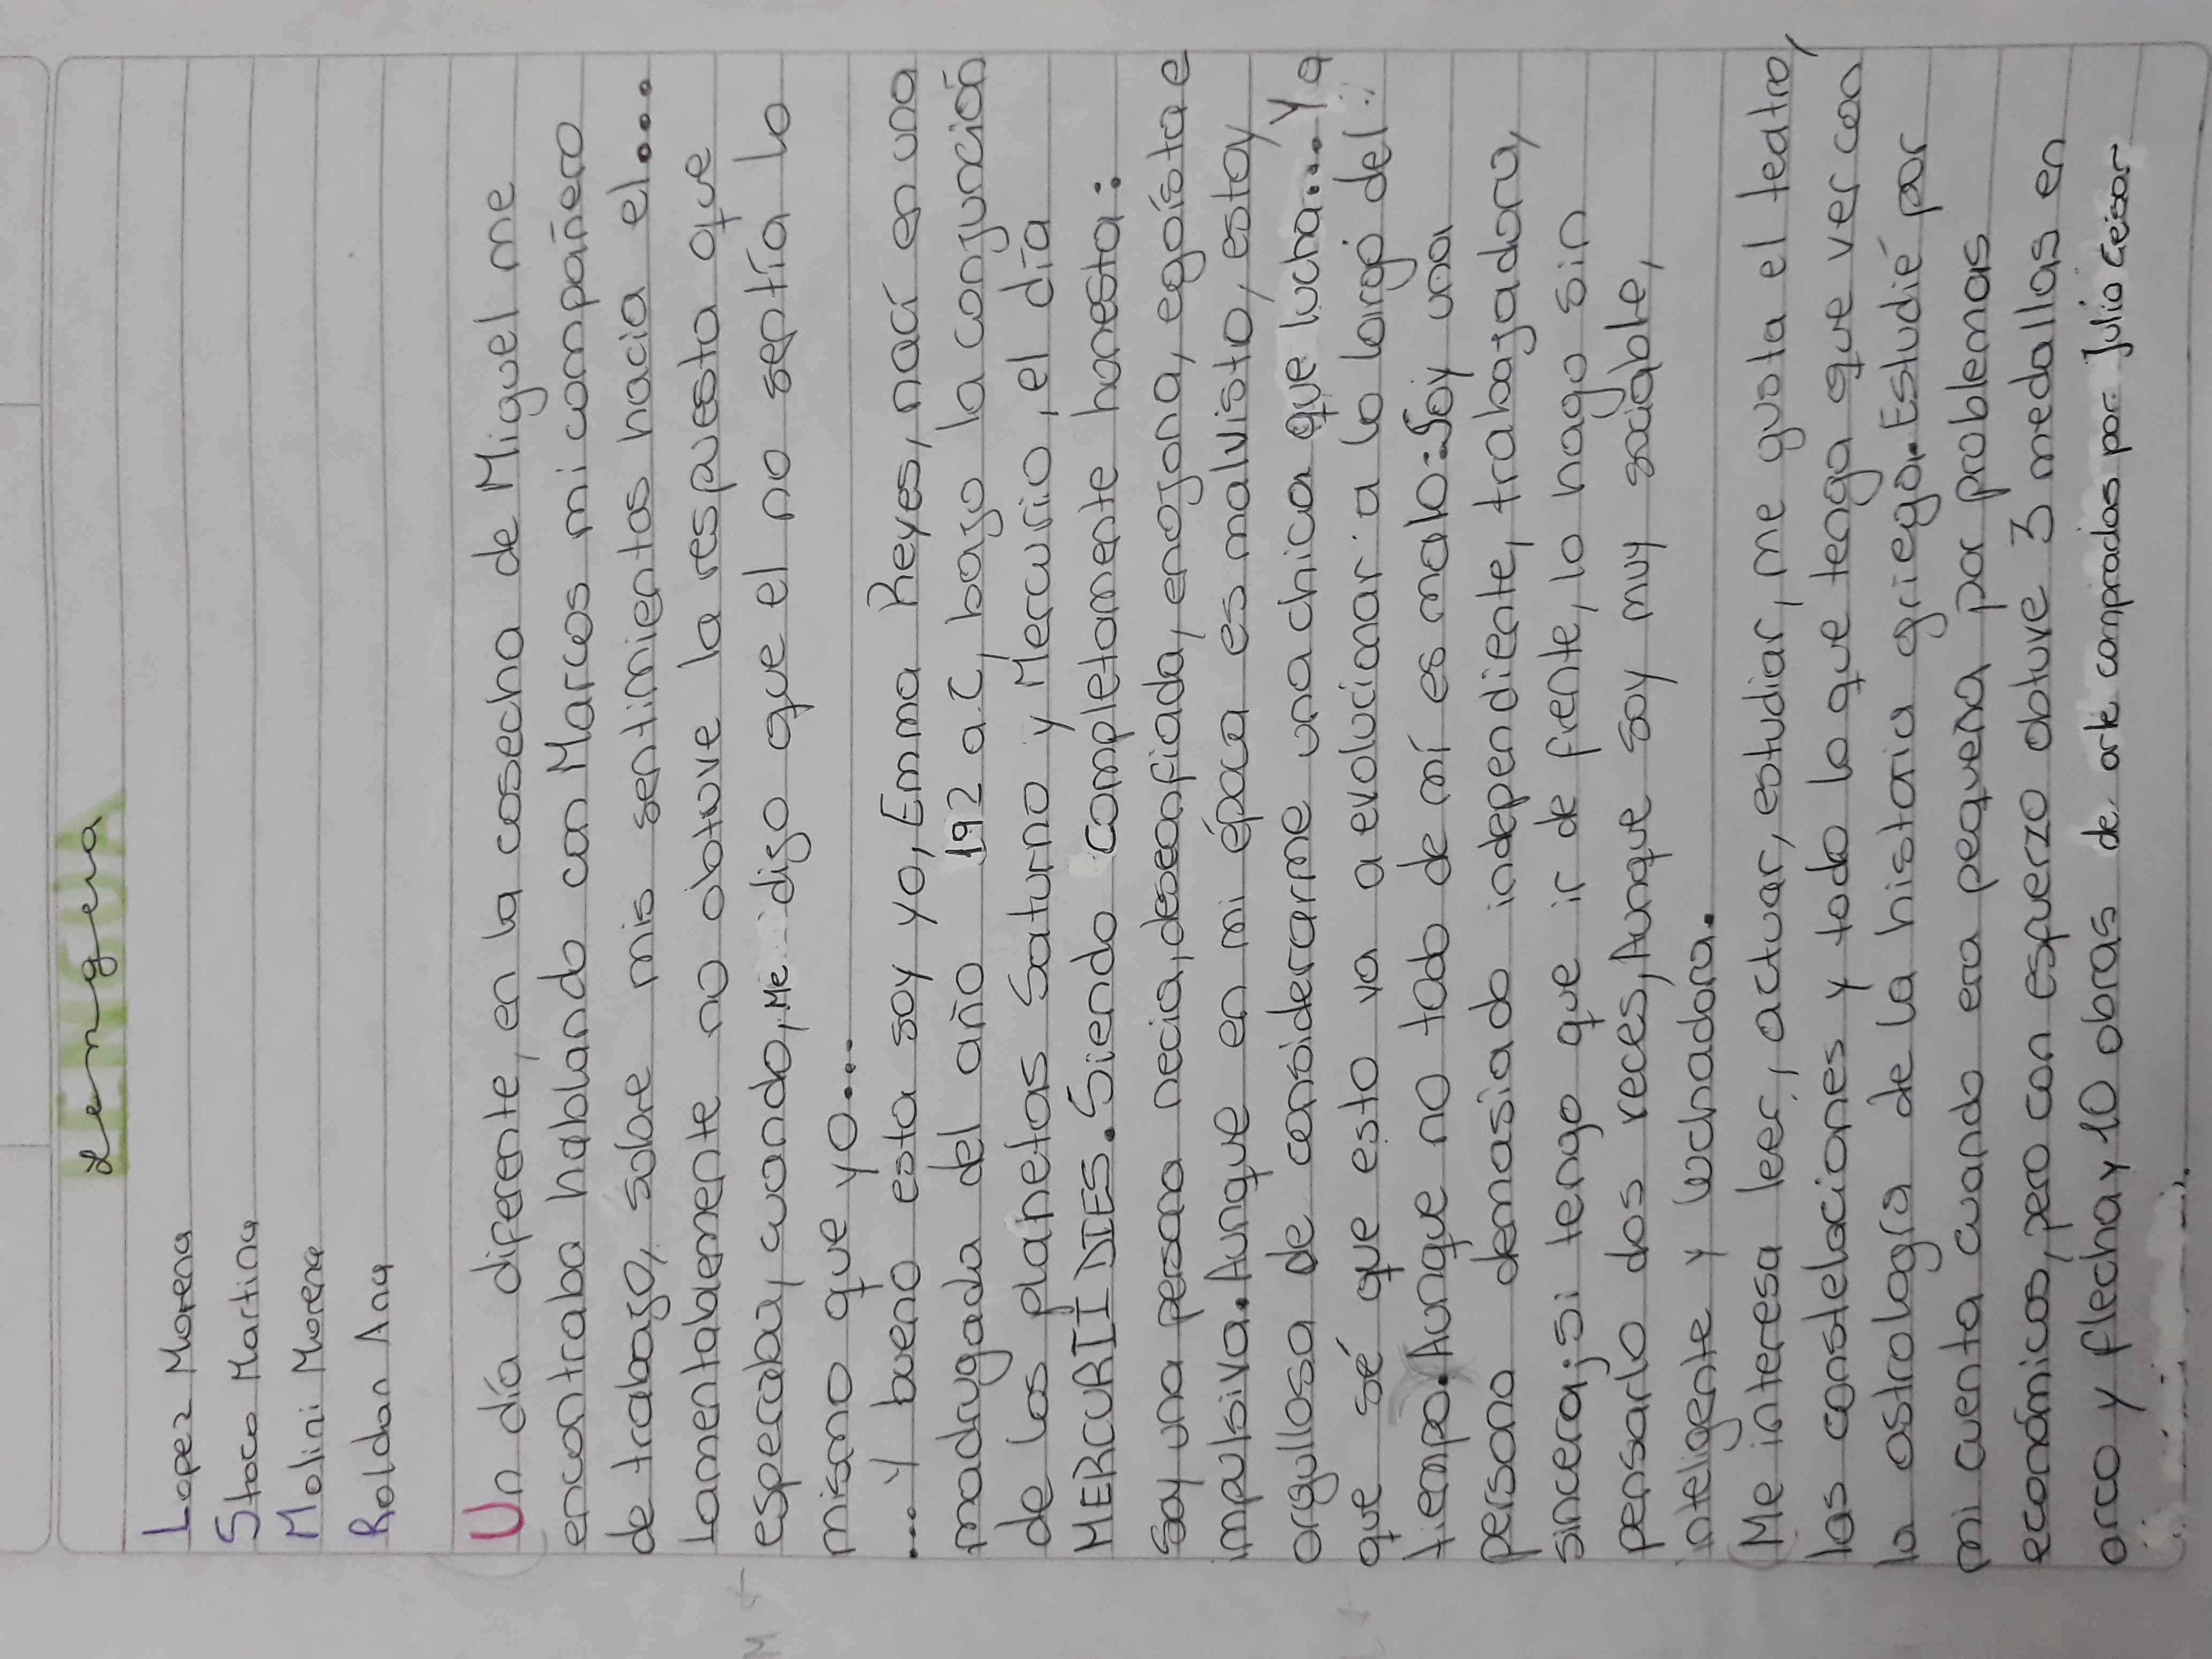 Lengua
Lopez Morena
Stoco Martina
Molini Morena
Roldan Ana
Un día diferente, en la cosecha de Miguel me
encontraba hablando con Marcos mi compañero
de trabajo, sobre mis sentimientos hacia el....
Lamentablemente no obtuve la respuesta que
esperaba, cuando, Me dijo que el no sentía lo
mismo que yo....
... y bueno esta soy yo, Emma Reyes, nací en una
madrugada del año 192 a.C, bajo la conjunción
de los planetas Saturno y Mercurio, el día
MERCURII DIES. Siendo completamente honesta:
Soy una persona necia, desconfiada, enojona, egoísta e
impulsiva. Aunque en mi época es malvisto, estoy
orgullosa de considerarme una chica que lucha... Ya
que sé que esto va a evolucionar a lo largo del
tiempo. Aunque no todo de mí es malo: Soy una
persona demasiado independiente, trabajadora,
sincera; si tengo que ir de frente, lo hago sin
pensarlo dos veces, Aunque soy muy sociable,
inteligente y luchadora.
Me interesa leer, actuar, estudiar, me gusta el teatro,
las constelaciones y todo lo que tenga que ver con
la astrología de la historia griega. Estudié por
mi cuenta cuando era pequeña por problemas
económicos, pero con esfuerzo obtuve 3 medallas en
arco y flecha y 10 obras de arte comprados por Julio César